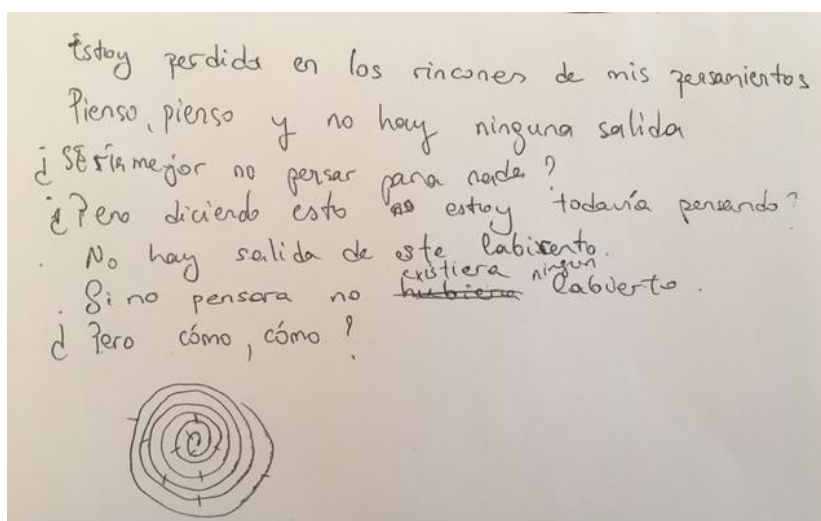 Estoy perdida en los rincones de mis pensamientos
Pienso, pienso y no hay ninguna salida
¿Sería mejor no pensar para nada?
¿Pero diciendo esto no estoy todavía pensando?
No hay salida de este
existiera ningun
Si no pensara no hubiera
¿Pero cómo, cómo?